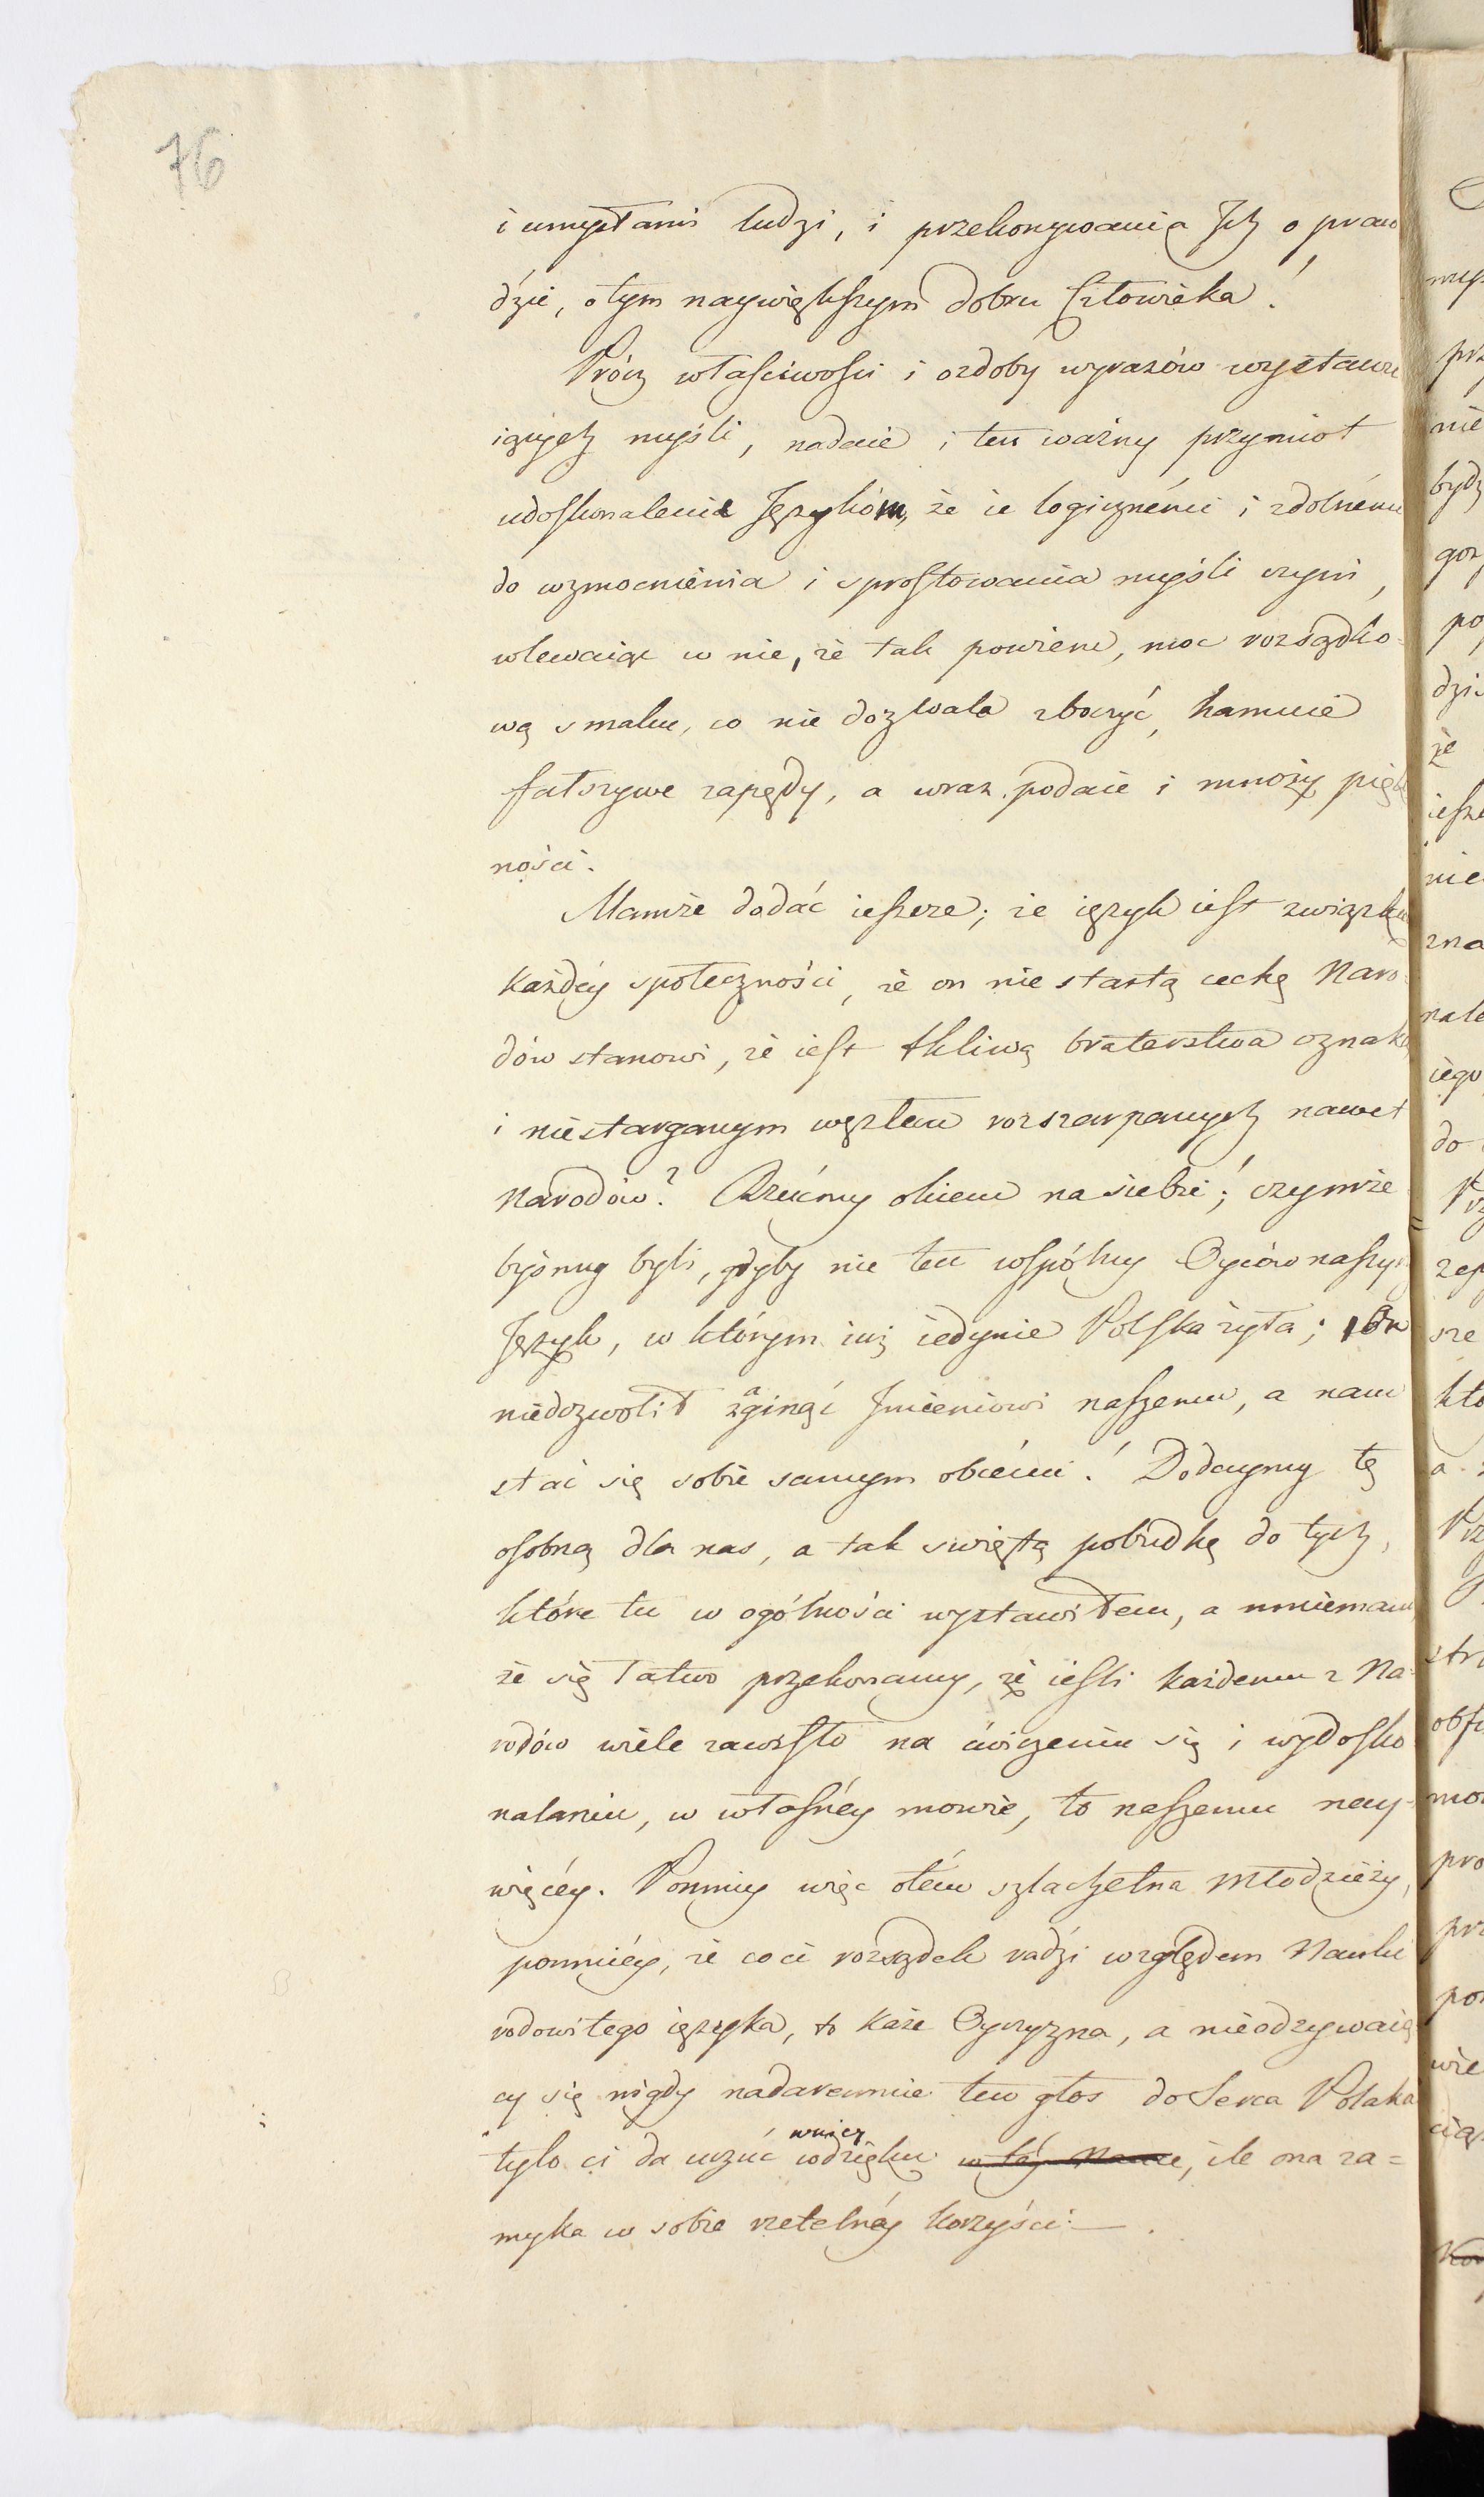 76
i umysłami ludzi, i przekonywania Ich o praw
dzie, o tym naywiększym dobru Człowieka!
Prócz właściwości i ozdoby wyrazów wystawu
iących myśli, nadaie i ten ważny przymiot
udoskonalenie Języków, że ie logicznémi i zdolnémi
do wzmocnienia i sprostowania myśli czyni,
wlewaiąc w nie, że tak powiem, moc rozsądko-
wą smaku, co nie dozwala zboczyć, hamuie
fałszywe zapędy, a wraz podaie i mnoży pięk
ności.
Mamże dodać ieszcze; że ięzyk iest związkie
każdéy społeczności, że on nie startą cechę Naro-
dów stanowi, że iest tkliwą braterstwa oznaką
i niestarganym węzłem rozszarpanych nawet
Narodów? Rzućmy okiem na siebie; czymże
byśmy byli, gdyby nie ten wspólny Oyców naszych
Język, w którym iuż iedynie Polska żyła; On
niedozwolił zaginąć Imieniowi naszemu, a nam
stać się sobie samym obcémi! Dodaymy tę
osobną dla nas, a tak świętą pobudkę do tych,
które tu w ogólności wystawiłem, a mniemam
że się łatwo przekonamy, że ieśli każdemu z Na-
rodów wiele zawisło na ćwiczeniu się i wydosko
nalaniu, w własnéy mowie, to naszemu nay-
więcéy. Pomniy więc otém szlachetna Młodzieży,
pomniéy, że co ci rozsądek radzi względem Nauki
rodowitego ięzyka, to każe Oyczyzna, a nieodzywaią
cy się nigdy nadaremnie ten głos do Serca Polaka
wniéy
tylo ci da uczuć wdzięku w téy Nauce, ile ona za=
myka w sobie rzetelnéy korzyści. —.